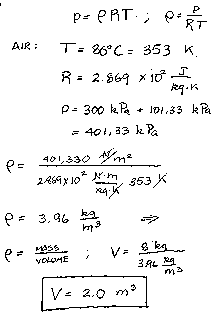 p = ρRT ; ρ = P/RT
AIR: T = 80°C = 353 K
R = 2.869 x 10² J/kg·K
P = 300 kPa + 101.33 kPa
= 401,33 kPa
ρ = 401,330 N/m² / 2.869 x 10² N·m/kg·K 353 K
ρ = 3.96 kg/m³ ⇒
ρ = MASS/VOLUME ; V = 8 kg / 3.96 kg/m³
V = 2.0 m³